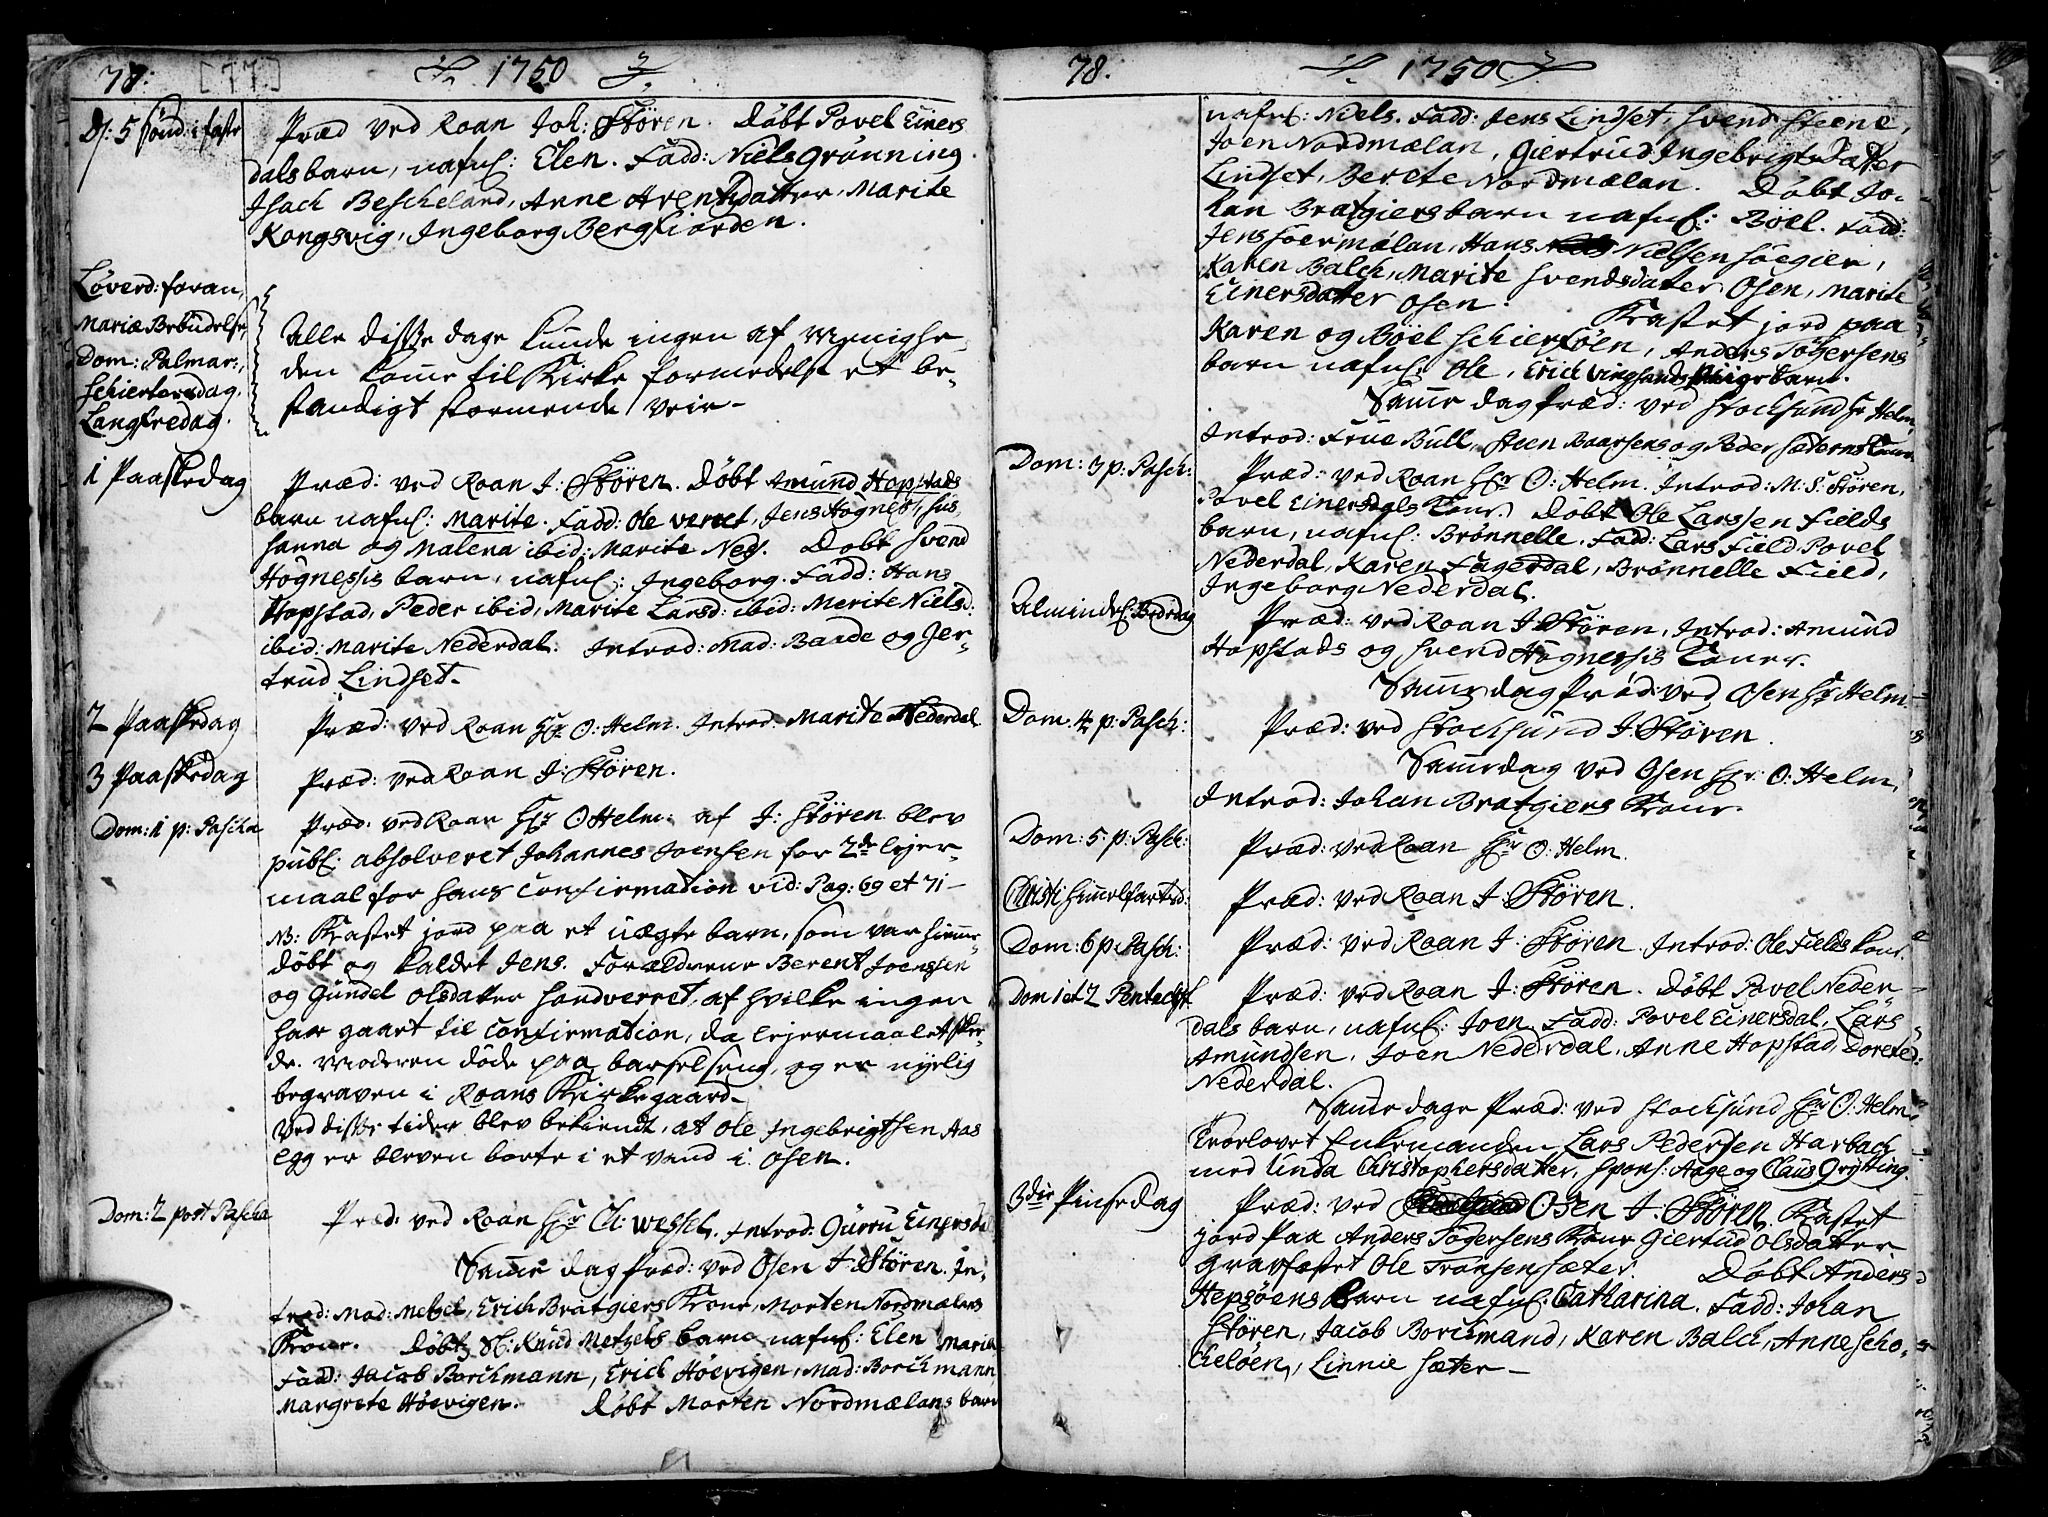 77: [77.] 1750
D: 5 Sønd: i faste Præd ved Roan Joh: Støren. Døbt Povel Einers
dals barn, nafnl: Elen. Fadd: Niels Grønning
Isach Bescheland, Anne Arentsdatter, Marite
Kongsvig, Ingeborg Bergfiorden.
Løverd: foran,
Mariæ Bebudelse,
Dom: Palmar:,
Schiertorsdag,
Langfredag.
Alle disse dage kunde ingen af Menighe-
den komme til Kirke formedelst et be-
standigt stormende veir-
1 Paaskedag Præd: ved Roan J: Støren. Døbt Amund Hopstads
barn nafnl: Marite. Fadd: Ole verret, Jens Høgnes, Su-
sanna og Malena ibid: Marite Ness. Døbt Svend
Høgnessis barn, nafnl: Ingeborg. Fadd: Hans
Hopstad, Peder ibid, Marite Larsd: ibid: Merite Nielsd:
ibid: Marite Nederdal. Introd: Mad: Baade og Jer-
trud Lindset.
2 Paaskedag Præd: ved Roan Hr O: Helm. Introd: Marite Nederdal
3 Paaskedag Præd: ved Roan J: Støren.
Dom: 1 p: Pascha Præd: ved Roan Hr O Helm: af J: Støren blev
publ: absolveret Johannes Joensen for 2de lejer-
maal for hans confirmation vid: Pag: 69 et 71-
NB: Kastet jord paa et uægte barn, som var hiemme-
døbt og kaldet Jens. Forældrene Berent Joensen
og Gundel Olsdatter Sandverret, af hvilke ingen
har gaaet til confirmation, da lejermaalet ske-
de. Moderen døde paa barselseng, og er nyelig
begraven i Roans Kirkegaard-
Ved disse tider blev bekiendt, at Ole Ingebrigtsen Aas
egg er bleven borte i et vand i Osen.
Dom: 2 post Pascha Præd: ved Roan Hr Cl: Wessel. Introd: Gurru Einersdal
Samme dag Præd: ved Osen J: Støren. In-
trod: Mad: Metzel, Erich Bratgiers Kone, Morten Nordmælans
Kone. Døbt Sl: Knud Metzels barn nafnl: Elen Maria
Fadd: Jacob Borchmann, Erich Høevigen, Mad: Borchmann,
Margrete Høevigen. Døbt Morten Nordmælans barn
78. 1750
nafnl: Niels. Fadd: Jens Lindset, Svend Steene,
Joen Nordmælan, Giertrud Ingebrigtsdatter
Lindset, Berete Nordmælan. Døbt Jo-
han Bratgiers barn nafnl: Böel. Fadd:
Jens Søermælan, Hans Nielsen Søegier,
Karen Balch, Marite Svendsdatter Osen, Marite
Einersdatter Osen. Kastet jord paa
Karen og Böel Schierfløen, Anders Tøgersens
barn nafnl: Ole, Erich Vingsands Pigebarn.
Samme dag Præd: ved Stocksund Hr Helm
Introd: Frue Bull, Steen Baarsens og Peder Sæterns Koner
Dom: 3 p: Pasch: Præd: ved Roan Hr O: Helm. Introd: M. S. Støren,
Povel Einersdals Kone. Døbt Ole Larssen Fields
barn, nafnl: Brønnelle. Fadd: Lars Field, Povel
Nederdal, Karen Fagerdal, Brønnelle Field,
Ingeborg Nederdal.
Almindel: Bededag Præd: ved Roan J: Støren, Introd: Amund
Hopstads og Svend Høgnessis Koner.
Samme dag Præd: ved Osen Hr Helm
Dom: 4 p: Pasch: Præd: ved Stocksund J: Støren.
Samme dag ved Osen Hr: O: Helm,
Introd: Johan Bratgiers Kone.
Dom: 5. p: Pasch: Præd: ved Roan Hr O: Helm.
Christi Himmelfartsd: Præd: ved Roan J: Støren.
Dom: 6 p Pasch: Præd: ved Roan J: Støren. Introd: Ole Fields kone.
Dom 1 et 2 Pentecost Præd: ved Roan J: Støren. Døbt Povel Neder-
dals barn, nafnl: Joen. Fadd: Povel Einersdal, Lars
Amundsen, Joen Nederdal, Anne Hopstad, Dorete
Nederdal.
Samme dage Præd: ved Stocksund Hr O: Helm
Trorlovet Enkemanden Lars Pedersen Harbach
med Unda Christophersdatter, Spons: Aage og Claus Grytting.
3die Pinsedag Præd: ved Osen J: Støren. Kastet
jord paa Anders Tøgersens Kone Giertrud Olsdatter
Gravfæstet Ole Tronsen Sæter. Døbt Anders
Hepsøens barn nafnl: Catharina. Fadd: Johan
Støren, Jacob Borchmand, Karen Balch, Anne Scho-
cheløen, Linnie Sæter-